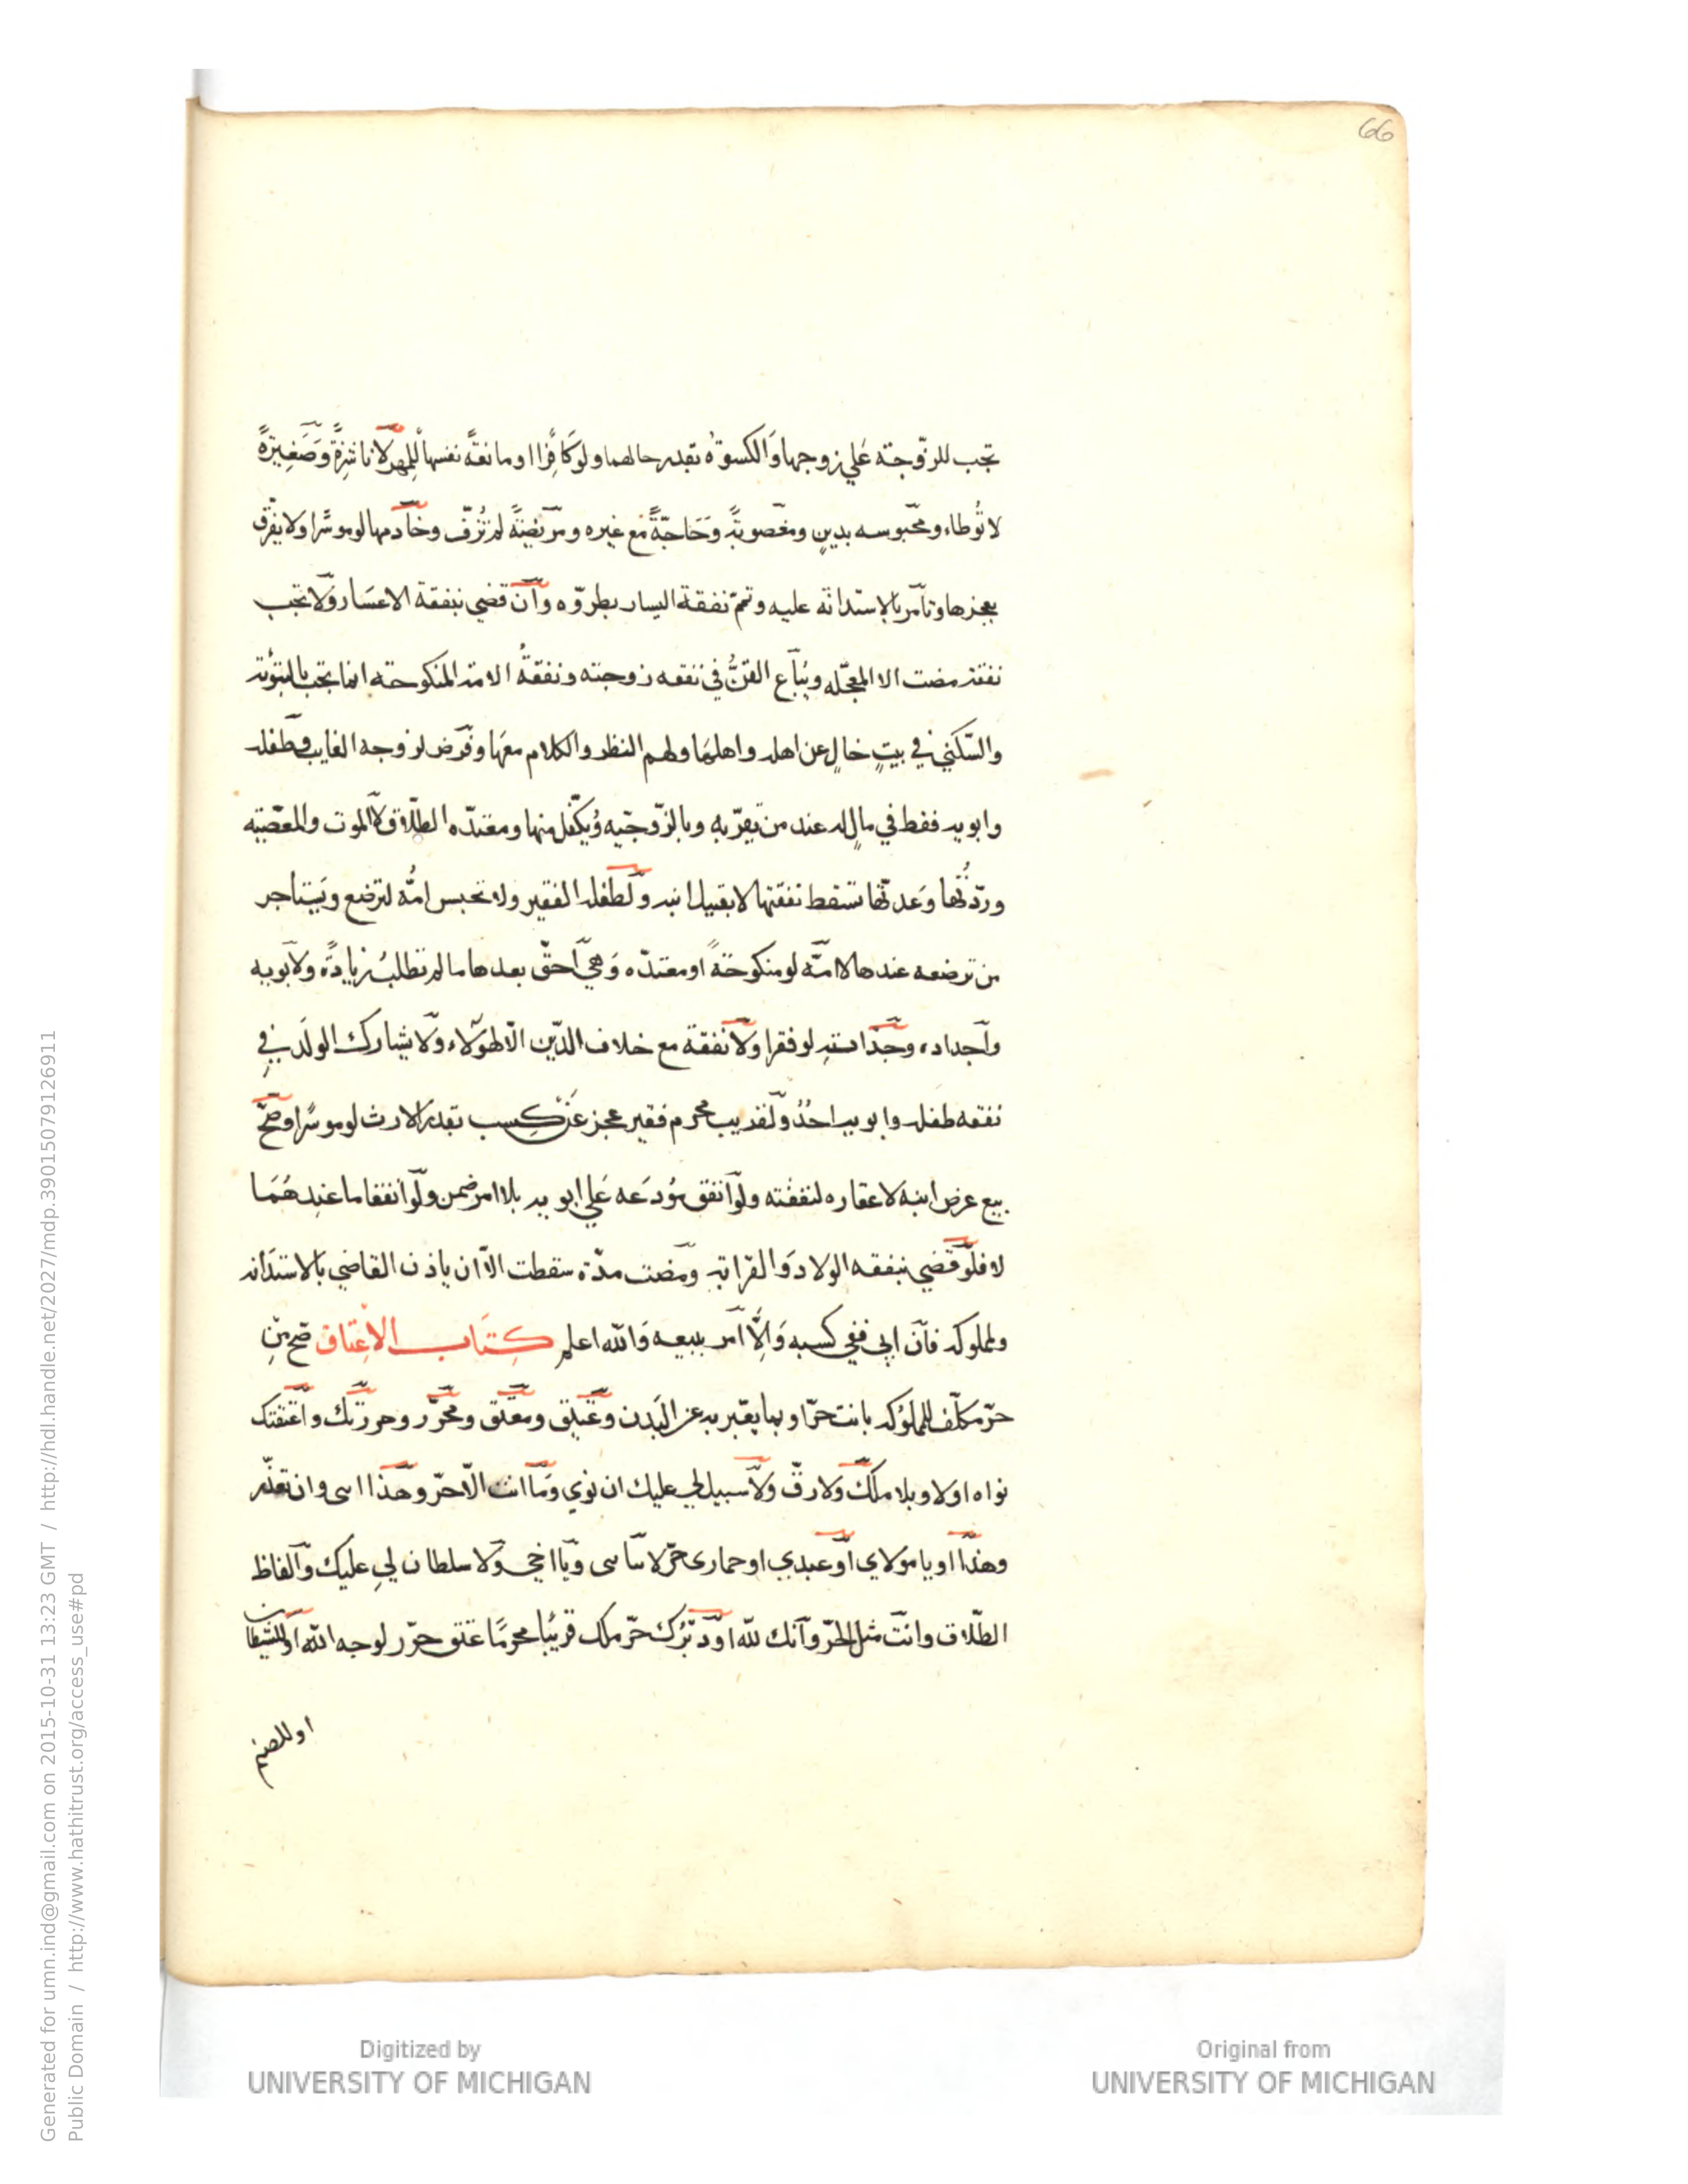 66
تجب للزّوجة عَلي زوجها وَالكسوةُ بقدر حالهما ولو كَافِرًا او مانعةً نفسها لِلمهر لَا ناشِزةً وَصَغِيرَةً
لا تُوطاء ومحَبوسه بدينٍ ومغصوبَةً وَحَاجّةً مع غيره ومرَيضَةً لم تُزفّ وخادمها لو موسرًا ولا يفرَّق
بعجزها وتأمر بالاستدانة عليه وتمّ نفقة اليسار بطروّه وَان قضي بنفقة الاعسَار وَلا تجب
نفقة مضت الا المعجّله ويُبَاع القنُّ في نفقه زوجته ونفقةُ الامة المنكوحة انما تجب بالتبوئة
والسّكني في بيتٍ خالٍ عن اهله واهلهَا ولهم النظر والكلام معهَا وفَرض لزوجه الغايب وطفله
وابويه فقط في مالٍ له عند من يقرّ به وبالزّوجيّه ويُكفّل منها ومعتدّه الطلّاق لَا الموت والمعصيّه
وردّتُها وَعدتها تسقط نفقتها لا بقبيل ابنه وَلطفله الفقير ولا تجبس امُّه لترضع ويَستاجر
من ترضعه عندها لا امَّه لو منكوحَةً او معتدّه وَهي اَحقّ بعدها ما لم تطلبُ زيادَةً وَلابويه
واَجداده وجَدّاته لو فقرا وَلا نفقة مع خلاف الدّين الّا لهوَلاء وَلا يشارك الولَد في
نفقه طفله وابويه احدٌ وَلقريب محرم فقير عجز عَن كسب بقدر الارث لو موسرًا وصَحّ
بيع عرض ابنه لا عقاره لنفقته ولَو انفق مُودَعه عَلي ابويه بلا امر ضمن ولَو انفقا ما عندهُمَا
لا فلَو قضي بنفقه الولاد وَالقرابة ومَضت مدّة سقطت الاّ ان ياذن القاضي بالاستدَانه
ولمملوكه فاَن ابي ففي كسبه وَاِلَّا امر ببيعه وَالله اعلم كِتَاب الاِعتَاق صَح مِن
حرّ مكلّف للمملوكه بانت حرّ او بما يعّبر به عن البَدن وعَتِيق ومعتَق ومحَرّر وحررتك واَعتقتك
نواه اولا وبلا ملكَ وَلا رقّ وَلا سبيل لي عليك ان نوي وَما انت الّا حرّ وهَذا ابنى وان تعذّر
وهذا او يا مولاي اَو عبدي او حمارى حَرّ لا بيَا ابنى ويَا اخي وَلا سلطان لي عليك وَالفاظ
الطّلاق وانتَ مثل الحرّ واَنك لله او دَبّرتك حَرّ ملك قريبًا محرمًا عتق حرّر لوجه الله او للشيطان
او للصنم
Generated for umn.ind@gmail.com on 2015-10-31 13:23 GMT / http://hdl.handle.net/2027/mdp.39015079126911
Public Domain / http://www.hathitrust.org/access_use#pd
Digitized by
UNIVERSITY OF MICHIGAN
Original from
UNIVERSITY OF MICHIGAN